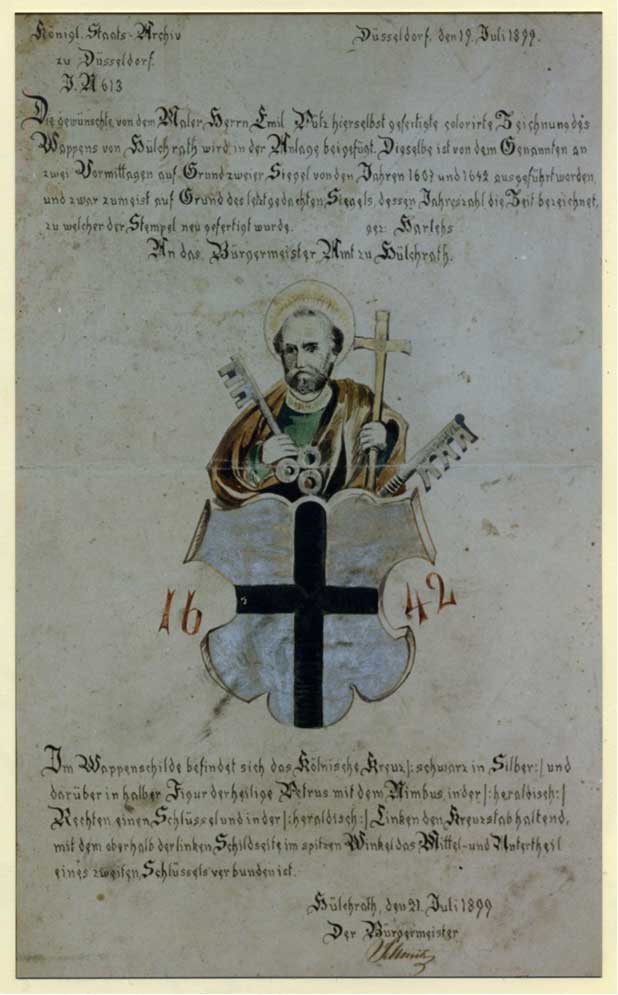 Königl. Staats-Archiv
zu Düsseldorf.
J. N 613
Düsseldorf, den 19. Juli 1899.
Die gewünschte, von dem Maler, Herrn, Emil Pütz hierselbst gefertigte colorirte Zeichnung des
Wappens von Hülchrath wird in der Anlage beigefügt. Dieselbe ist von dem Genannten an
zwei Vormittagen auf Grund zweier Siegel von den Jahren 1607 und 1642 ausgeführt worden,
und zwar zumeist auf Grund des letztgedachten Siegels, dessen Jahreszahl die Zeit bezeichnet,
zu welcher der Stempel neu gefertigt wurde. gez: Harleß
An das Bürgermeister Amt zu Hülchrath.
16 42
Im Wappenschilde befindet sich das Kölnische Kreuz |: schwarz in Silber :| und
darüber in halber Figur der heilige Petrus mit dem Nimbus, in der |: heraldisch :|
Rechten einen Schlüssel und in der |: heraldisch :| Linken den Kreuzstab haltend,
mit dem oberhalb der linken Schildseite im spitzen Winkel das Mittel- und Untertheil
eines zweiten Schlüssels verbunden ist.
Hülchrath, den 21. Juli 1899
Der Bürgermeister